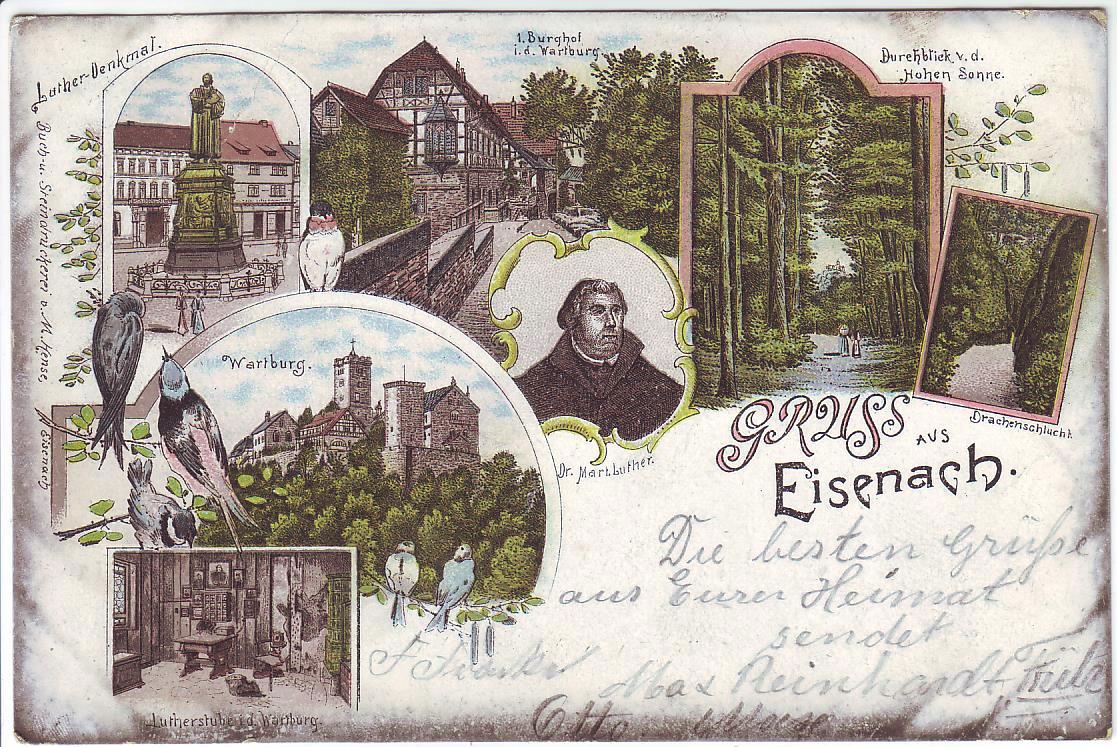 Luther-Denkmal.
1. Burghof
i. d. Wartburg.
Durchblick v. d.
Hohen Sonne.
Buch- u. Steindruckerei v. M. Hense, Eisenach
Wartburg.
Dr. Mart. Luther.
Drachenschlucht.
GRUSS
AUS
Eisenach.
Lutherstube i. d. Wartburg.
Die besten Grüße
aus Eurer Heimat
sendet
Max Reinhardt
Otto